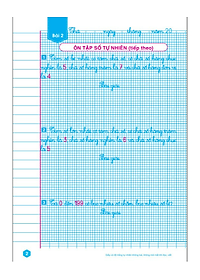 Bài 2
Thứ ngày tháng năm 20
ÔN TẬP SỐ TỰ NHIÊN (tiếp theo)
1 Tìm số bé nhất có năm chữ số, có chữ số hàng chục
nghìn là 5, chữ số hàng trăm là 7 và chữ số hàng đơn vị
là 4.
Bài giải
2 Tìm số lớn nhất có năm chữ số, có chữ số hàng trăm
nghìn là 3, chữ số hàng nghìn là 6 và chữ số hàng chục
là 5.
Bài giải
3 Từ 0 đến 199 có bao nhiêu số chẵn, bao nhiêu số lẻ?
Bài giải